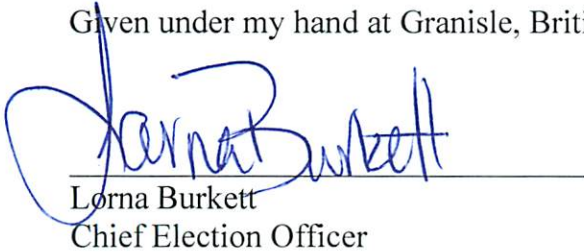 Given under my hand at Granisle, Briti
Lorna Burkett
Lorna Burkett
Chief Election Officer